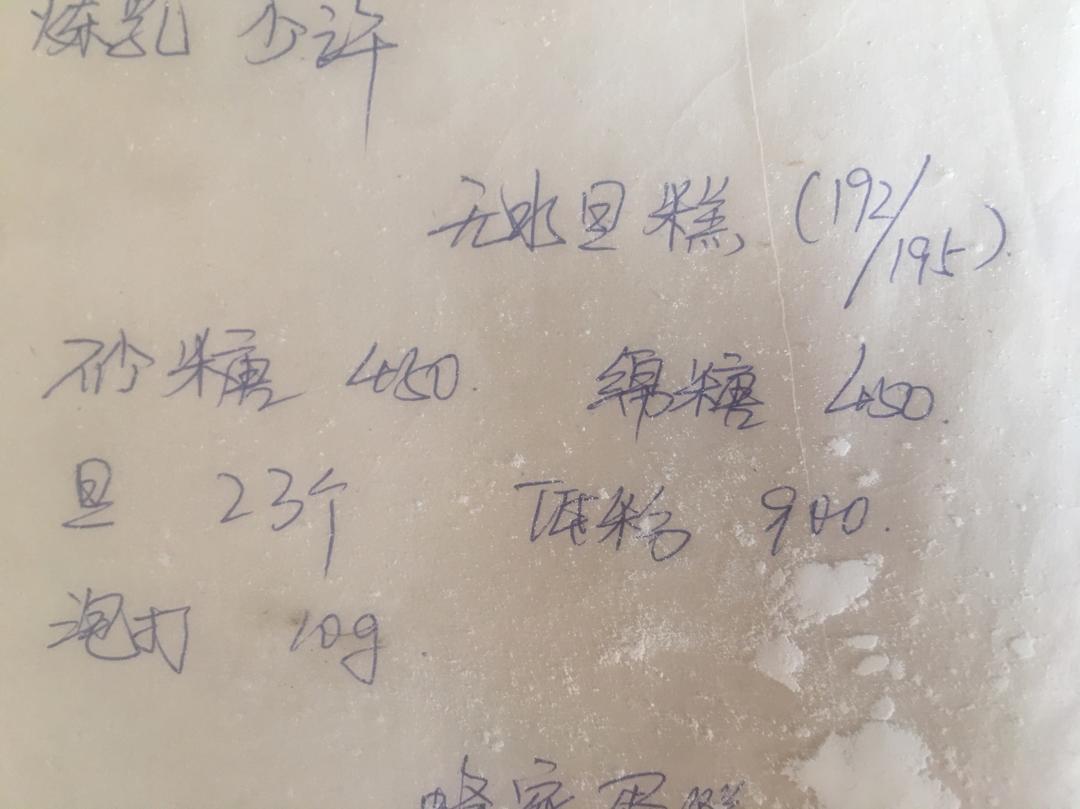 炼乳 少许
无水旦糕 (192/195).
砂糖 450. 绵糖 450.
旦 23个 低粉 900.
泡打 10g.
蜂蜜蛋糕